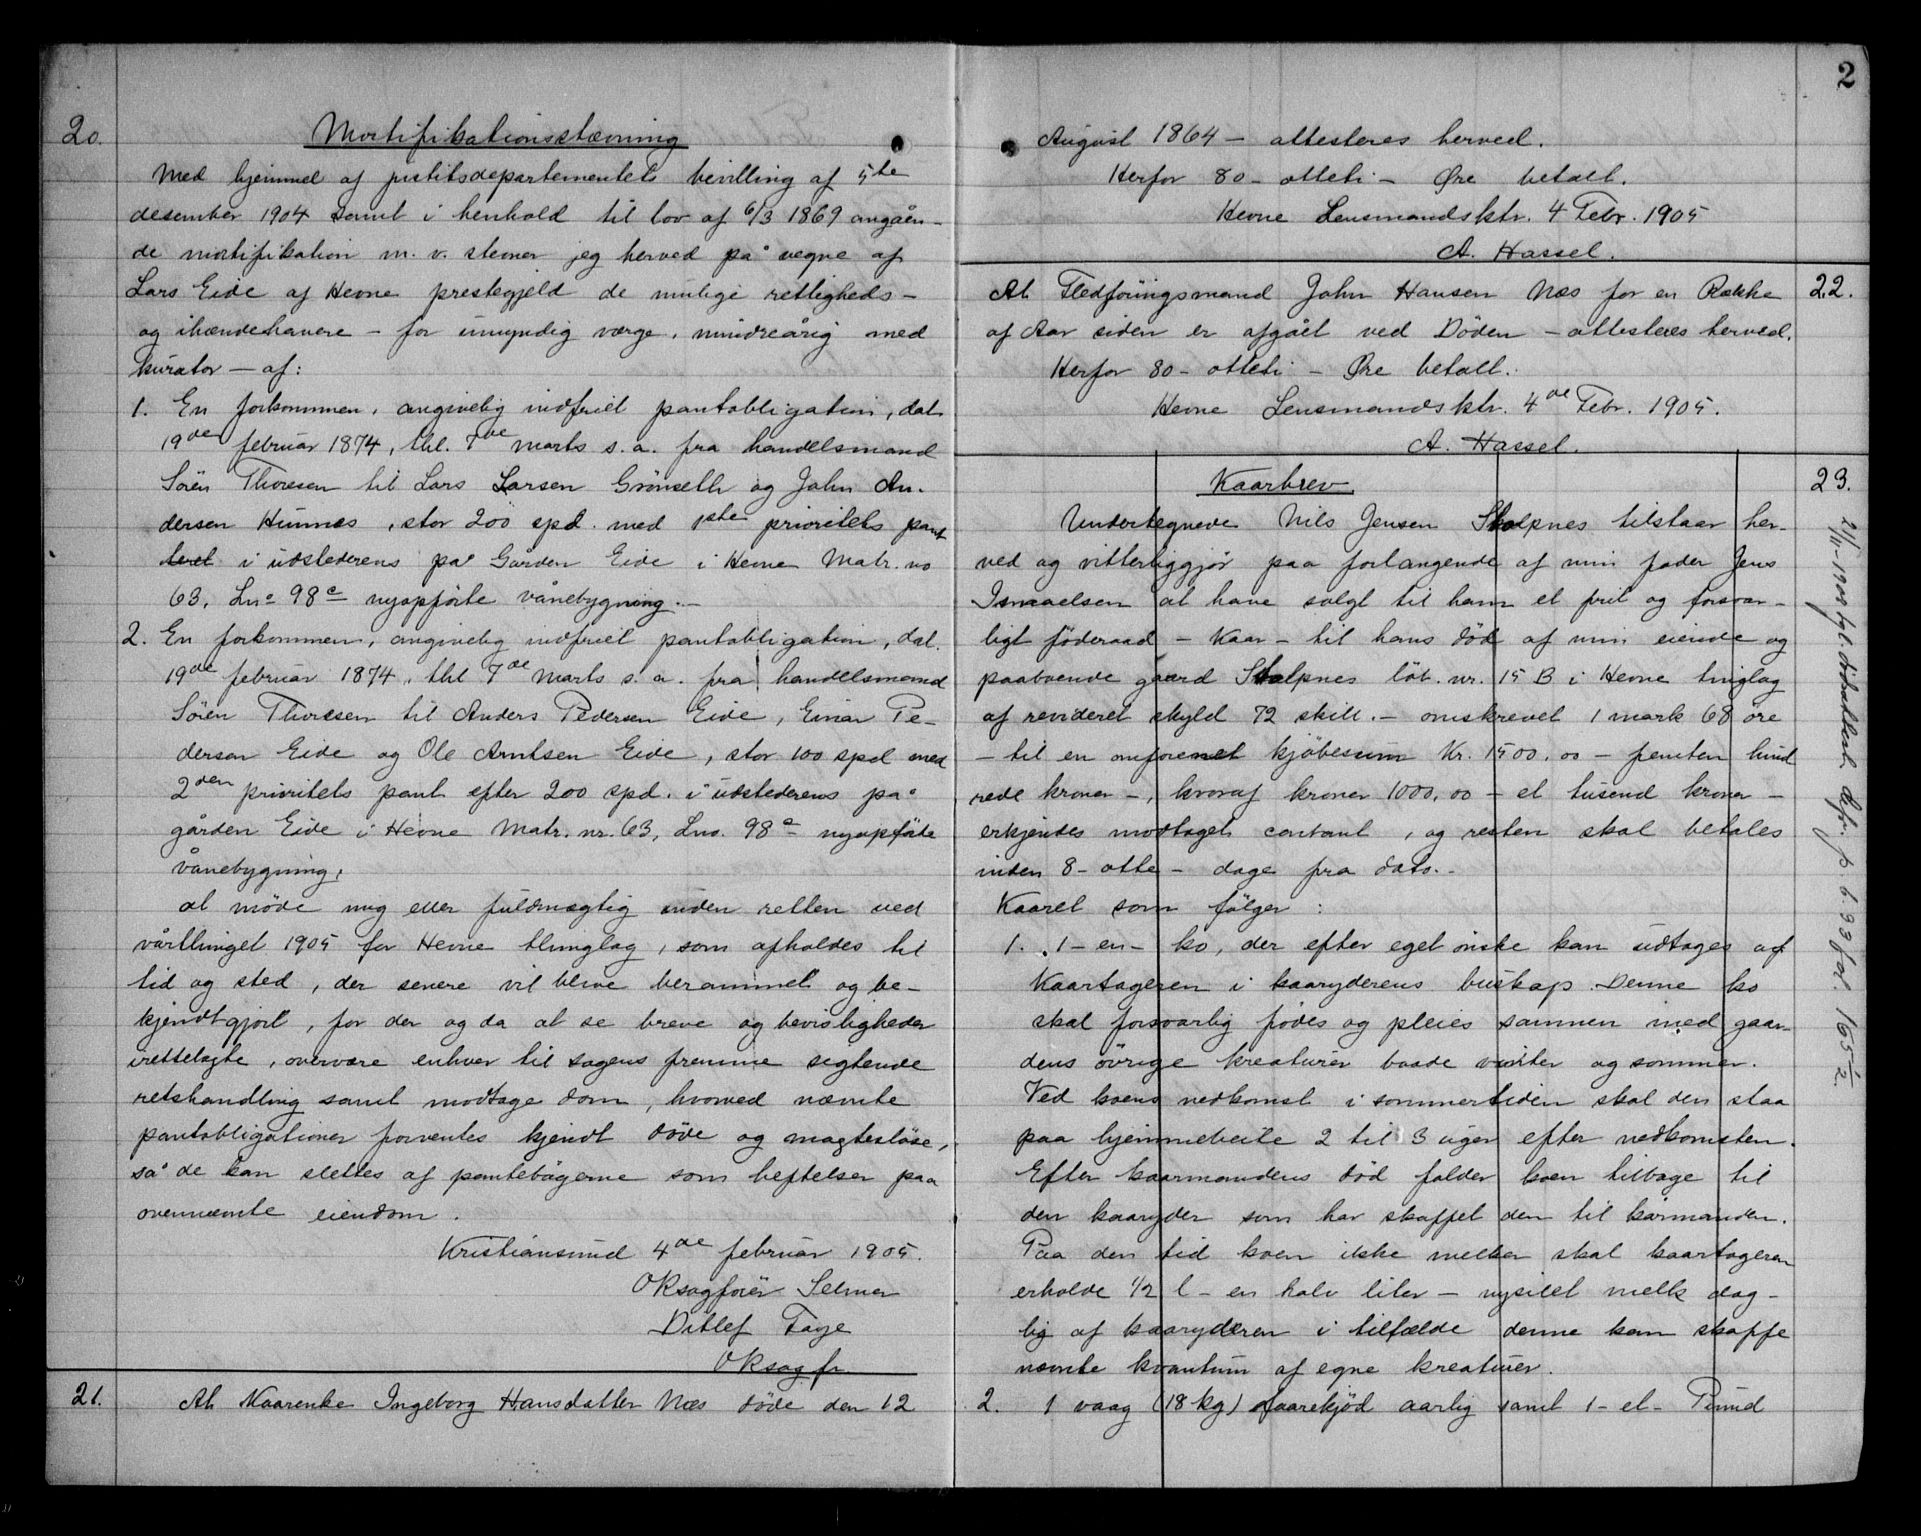 20.
Mortifikationsstævning
Med hjemmel af justitsdepartementets bevilling af 5te
desember 1904 samt i henhold til lov af 6/3 1869 angåen-
de mortifikation m. v. stevner jeg herved på vegne af
Lars Eide af Hevne prestegjeld de mulige rettigheds-
og ihændehavere - for umyndig værge, mindreårig med
kurator - af:
1. En forkommen, angivelig indfriet pantobligation, dat.
19de februar 1874, thl. 7de marts s. a. fra handelsmand
Sören Thoresen til Lars Larsen Grönseth og John An-
dersen Hunnes, stor 200 spd. med 1ste prioritets pant
i udstederens på Gården Eide i Hevne Matr. no
63, Lno 98c nyopförte vånebygning. -
2. En forkommen, angivelig indfriet pantobligation, dat.
19de februar 1874, thl 7de marts s. a. fra handelsmand
Sören Thoresen til Anders Pedersen Eide, Einar Pe-
dersen Eide og Ole Arntsen Eide, stor 100 spd med
2den prioritets pant efter 200 spd. i udstederens på
gården Eide i Hevne Matr. nr. 63, Lno. 98c nyopföte
vånebygning,
at möde mig eller fuldmægtig inden retten ved
vårthinget 1905 for Hevne thinglag, som afholdes til
tid og sted, der senere vil blive berammet og be-
kjendtgjort, for der og da at se breve og bevisligheder
irettelagte, overvære enhver til sagens fremme sigtende
retshandling samt modtage dom, hvorved nævnte
pantobligationer forventes kjendt döde og magteslöse,
så de kan slettes af pantebögerne som heftelser paa
ovennævnte eiendom.
Kristiansund 4de februar 1905.
OKsagförer Selmer
Ditlef Faye
OKsagfr
21.
At Kaarenke Ingeborg Hansdatter Næs döde den 12
2
August 1864 - attesteres herved.
Herfor 80 - otteti - Öre betalt.
Hevne Lensmandsktr. 4 Febr. 1905
A. Hassel.
22.
At Fledföringsmand John Hansen Næs for en Række
af Aar siden er afgået ved Döden - attesteres herved.
Herfor 80 - otteti - Öre betalt.
Hevne Lensmandsktr. 4de Febr. 1905.
A. Hassel.
23.
Kaarbrev
Undertegnede Nils Jensen Stolpnes tilstaar her-
ved og vitterliggjör paa forlangende af min fader Jens
Ismaelsen at have solgt til ham et frit og forsvar-
ligt föderaad - Kaar - til hans död af min eiende og
paaboende gaard Stolpnes löb. nr. 15 B i Hevne tinglag
af revideret skyld 72 skill. - omskrevet 1 mark 68 öre
- til en omforenet kjöbesum Kr. 1500,00 - femten hund
rede kroner -, hvoraf kroner 1000,00 - et tusend kroner -
erkjendes modtaget contant, og resten skal betales
inden 8 - otte - dage fra dato. -
Kaaret som fölger :
1. 1 - en - ko, der efter eget önske kan udtages af
Kaartageren i kaaryderens buskap. Denne ko
skal forsvarlig födes og pleies sammen med gaar-
dens övrige kreaturer baade vinter og sommer.
Ved koens nedkomst i sommertiden skal den staa
paa hjemmebeite 2 til 3 uger efter nedkomsten.
Efter kaarmandens död falder koen tilbage til
den kaaryder som har skaffet den til kårmanden.
Paa den tid koen ikke melker skal kaartageren
erholde 1/2 l - en halv liter - nysilet melk dag-
lig af kaaryderen i tilfælde denne kan skaffe
nævnte kvantum af egne kreaturer.
2. 1 vaag (18 kg) faarekjöd aarlig samt 1 - et - Pund
21/11-1908 tgl. dödsattest p. b. 33 fol. 165 1/2